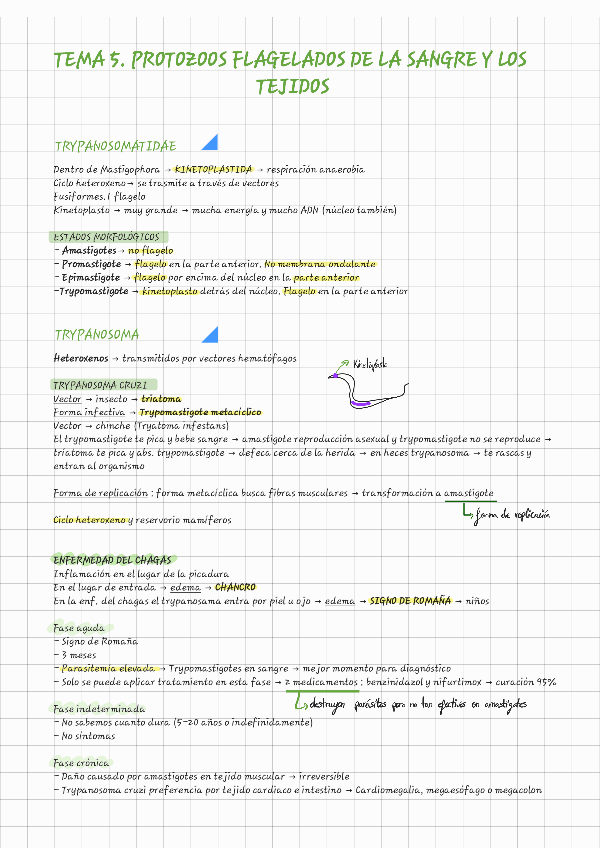 TEMA 5. PROTOZOOS FLAGELADOS DE LA SANGRE Y LOS
TEJIDOS
TRYPANOSOMATIDAE
Dentro de Mastigophora → KINETOPLASTIDA → respiración anaerobia
Ciclo heteroxeno → se trasmite a través de vectores
Fusiformes.1 flagelo
Kinetoplasto → muy grande → mucha energía y mucho ADN (núcleo también)
ESTADOS MORFOLÓGICOS
- Amastigotes → no flagelo
- Promastigote → flagelo en la parte anterior. No membrana ondulante
- Epimastigote → flagelo por encima del núcleo en la parte anterior
-Trypomastigote → kinetoplasto detrás del núcleo. Flagelo en la parte anterior
TRYPANOSOMA
Heteroxenos → transmitidos por vectores hematófagos
TRYPANOSOMA CRUZI
Vector → insecto → triatoma
Forma infectiva → Trypomastigote metacíclico
Vector → chinche (Tryatoma infestans)
El trypomastigote te pica y bebe sangre → amastigote reproducción asexual y trypomastigote no se reproduce →
triatoma te pica y abs. trypomastigote → defeca cerca de la herida → en heces trypanosoma → te rascas y
entran al organismo
Forma de replicación : forma metacíclica busca fibras musculares → transformación a amastigote
forma de replicación
Ciclo heteroxeno y reservorio mamíferos
ENFERMEDAD DEL CHAGAS
Inflamación en el lugar de la picadura
En el lugar de entrada → edema → CHANCRO
En la enf. del chagas el trypanosama entra por piel u ojo → edema → SIGNO DE ROMAÑA → niños
Fase aguda
- Signo de Romaña
- 3 meses
- Parasitemia elevada → Trypomastigotes en sangre → mejor momento para diagnóstico
- Solo se puede aplicar tratamiento en esta fase → 2 medicamentos : benzinidazol y nifurtimox → curación 95%
destruyen parásitos pero no tan efectivos en amastigotes
Fase indeterminada
- No sabemos cuanto dura (5-20 años o indefinidamente)
- No síntomas
Fase crónica
- Daño causado por amastigotes en tejido muscular → irreversible
- Trypanosoma cruzi preferencia por tejido cardiaco e intestino → Cardiomegalia, megaesófago o megacolon